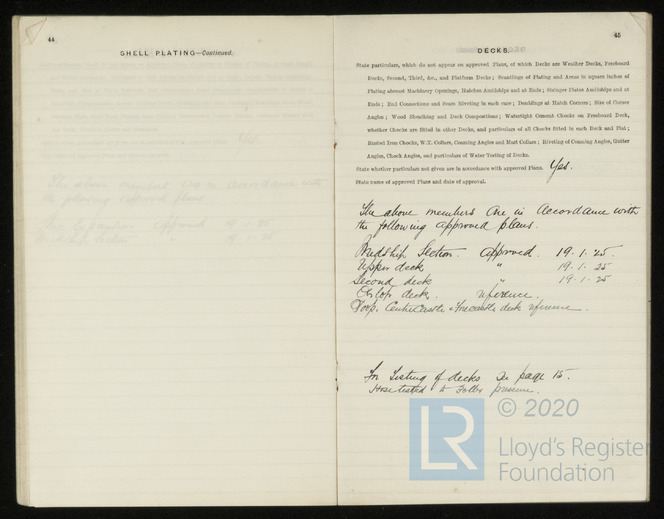 44
SHELL PLATING—Continued.
The above members are in accordance with
the following approved plans
45
DECKS.
State particulars, which do not appear on approved Plans, of which Decks are Weather Decks, Freeboard
Decks, Second, Third, &c., and Platform Decks; Scantlings of Plating and Areas in square inches of
Plating abreast Machinery Openings, Hatches Amidships and at Ends; Stringer Plates Amidships and at
Ends; End Connections and Seam Riveting in each case; Doublings at Hatch Corners; Size of Corner
Angles; Wood Sheathing and Deck Compositions; Watertight Cement Chocks on Freeboard Deck,
whether Chocks are fitted in other Decks, and particulars of all Chocks fitted in each Deck and Flat;
Rusted Iron Chocks, W.T. Collars, Coaming Angles and Mast Collars; Riveting of Coaming Angles, Gutter
Angles, Chock Angles, and particulars of Water Testing of Decks.
State whether particulars not given are in accordance with approved Plans. Yes.
State name of approved Plans and date of approval.
The above members are in accordance with
the following approved plans.
Midship Section. approved. 19·1·25.
Upper deck " 19·1·25
Second deck " 19·1·25
Orlop deck. reference.
Poop, Centre Castle & Forecastle deck reference.
For Testing of decks see page 15.
Hose tested to 30lbs pressure.
© 2020
LR
Lloyd's Register
Foundation